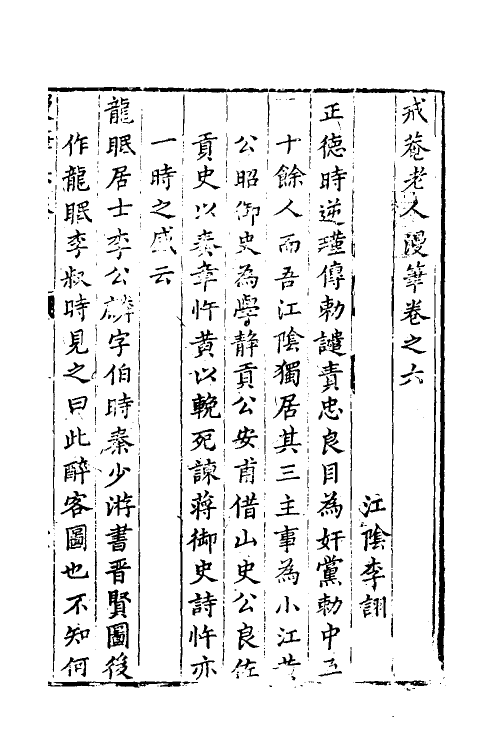 戒菴老人漫筆卷之六
江陰李詡
正德時逆瑾傳勅譴責忠良目為奸黨勅中五
十餘人而吾江陰獨居其三主事為小江黃
公昭御史為學靜貢公安甫借山史公良佐
貢史以奏章忤黃以輓死諫蔣御史詩忤亦
一時之盛云
龍眠居士李公麟字伯時秦少游書晋賢圖後
作龍眠李叔時見之曰此醉客圖也不知何